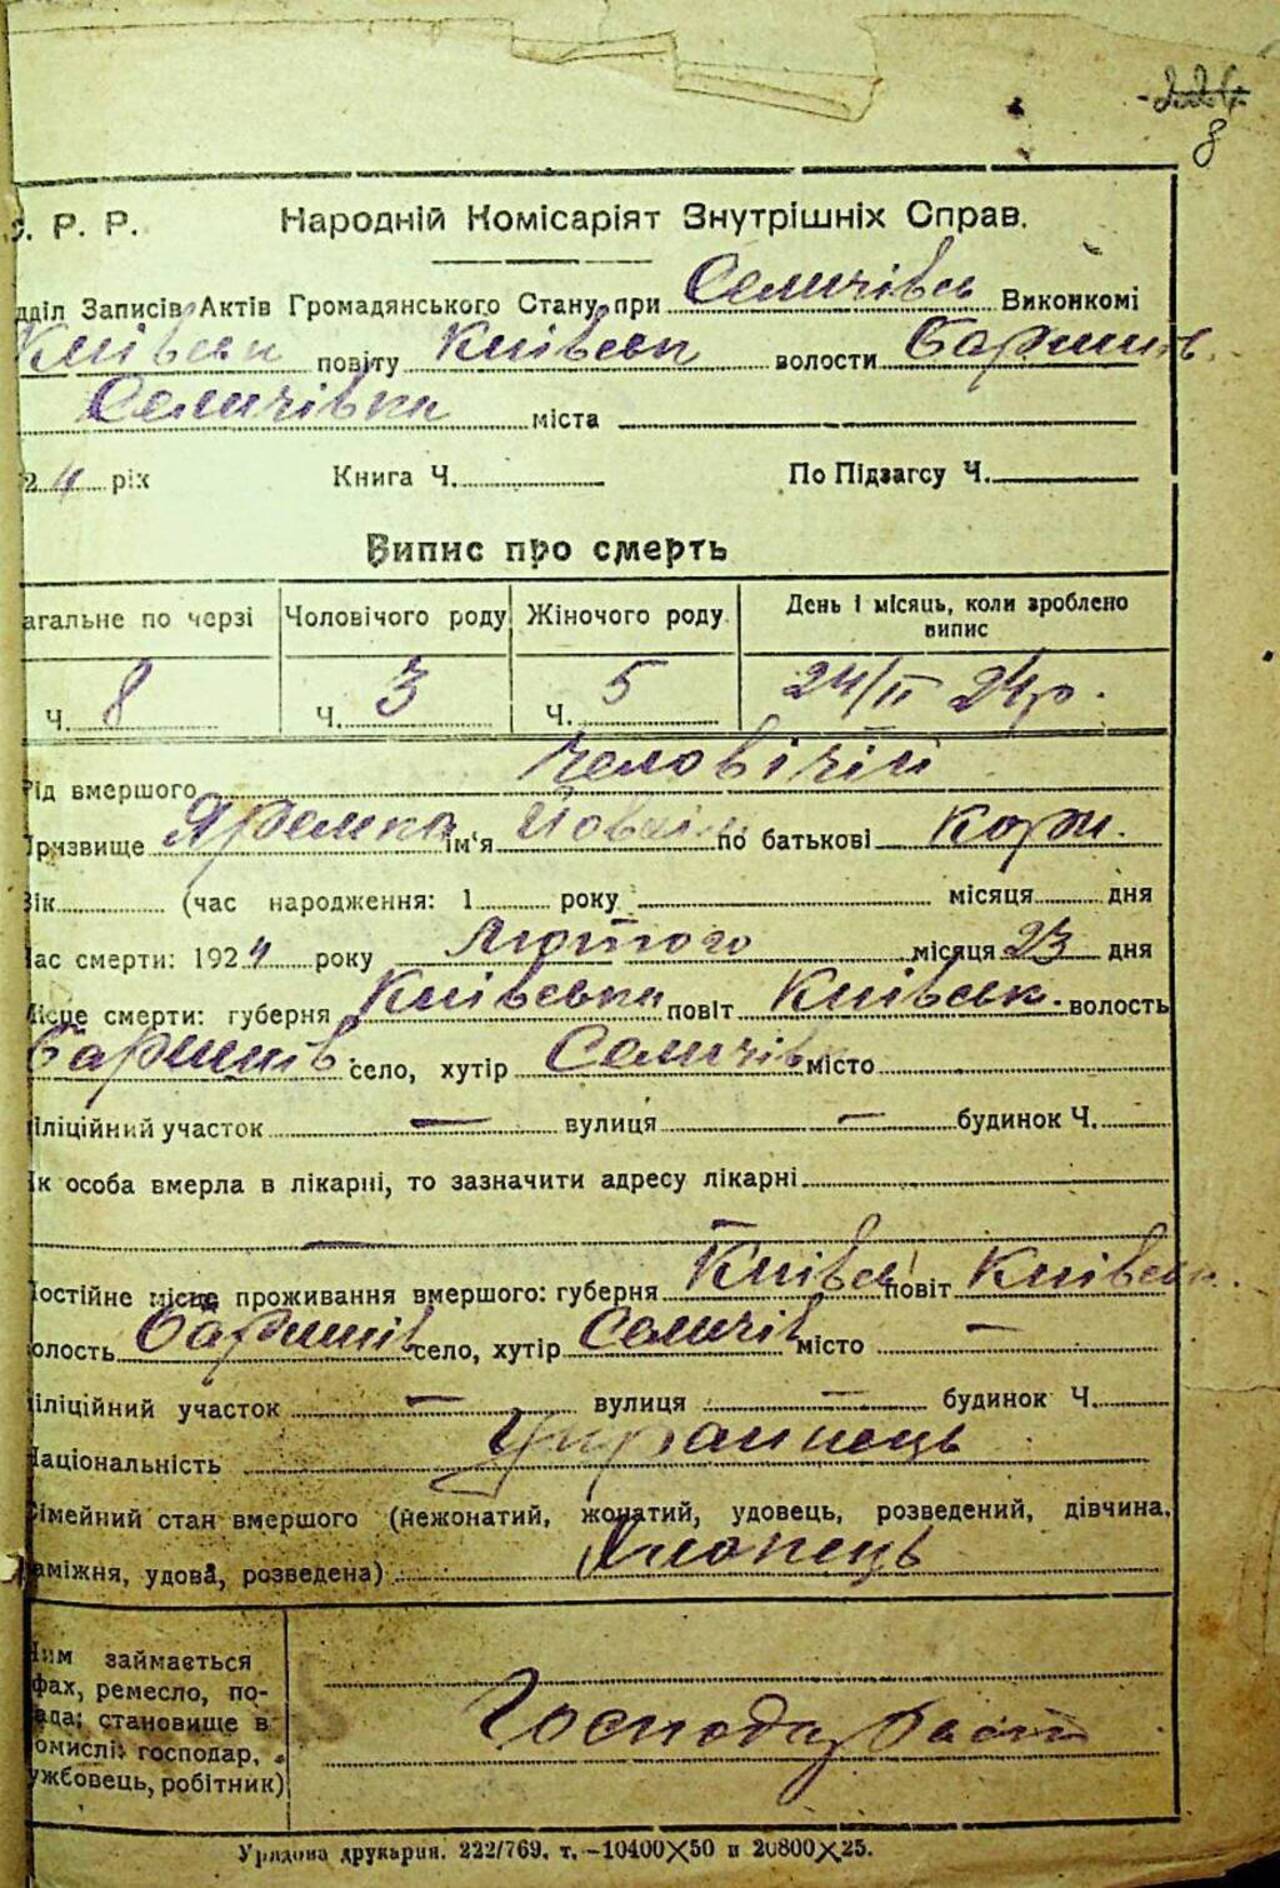 8
. Р. Р. Народній Комісаріят Знутрішніх Справ.
дділ Записів Актів Громадянського Стану при Селичівск Виконкомі
Київськ повіту Київськ волости Баришів.
Селичівка міста
2 4 рік Книга Ч. По Підзагсу Ч.
Випис про смерть
агальне по черзі Чоловічого роду Жіночого роду День і місяць, коли зроблено випис
Ч. 8 Ч. 3 Ч. 5 24/II 24р.
Рід вмершого Человічій
Призвище Яремка ім'я по батькові Корн.
Вік (час народження: 1 року місяця дня
Час смерти: 1924 року Лютого місяця 23 дня
Місце смерти: губерня Київська повіт Київськ. волость
Баришів. село, хутір Селичівк місто
міліційний участок — вулиця — будинок Ч.
Як особа вмерла в лікарні, то зазначити адресу лікарні
—
Постійне місце проживання вмершого: губерня Київськ повіт Київськ.
олость Баришів село, хутір Селичів місто —
міліційний участок — вулиця — будинок Ч.
Національність Українець
Сімейний стан вмершого (нежонатий, жонатий, удовець, розведений, дівчина,
аміжня, удова, розведена) Хлопець
Чим займається
фах, ремесло, по-
ада; становище в
омислі: господар,
ужбовець, робітник) Господарст
Урядова друкарня. 222/769, т.—10400×50 и 20800×25.